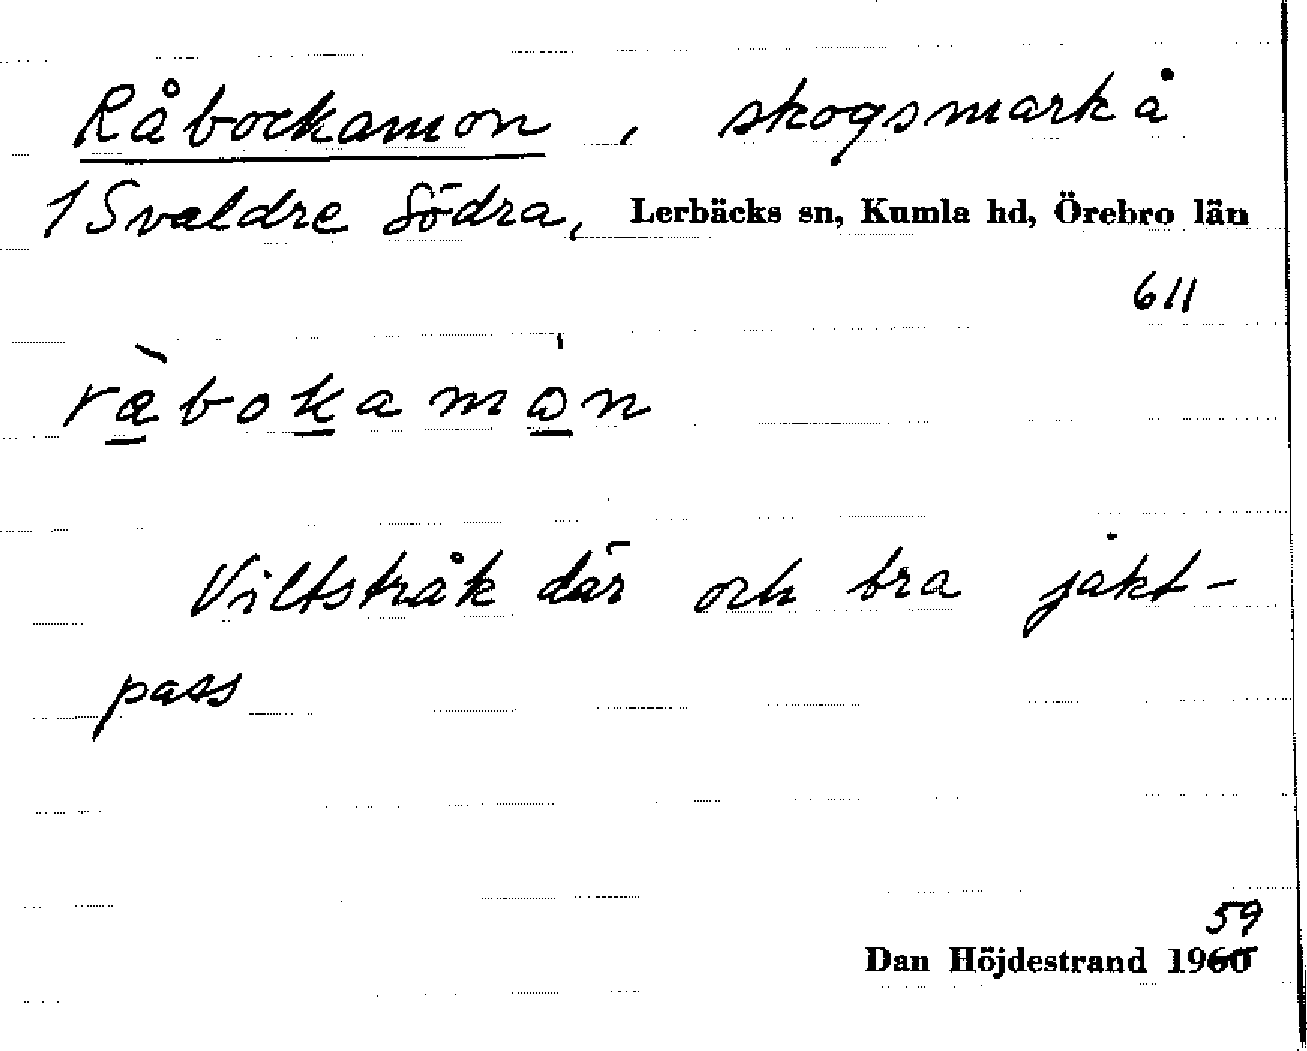 Råbockamon, skogsmark å
1 Svaldre Södra, Lerbäcks sn, Kumla hd, Örebro län
611
ràbokamo̍n
Viltstråk där och bra jakt-
pass
59
Dan Höjdestrand 1960